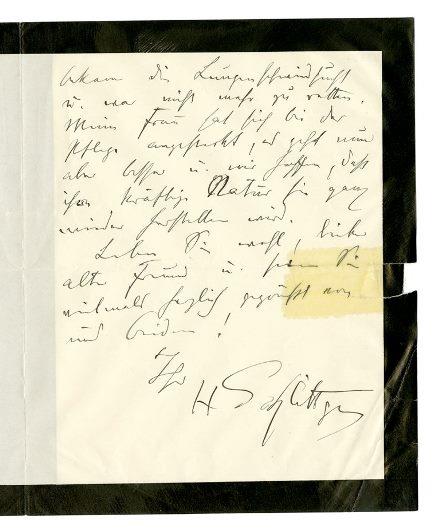 bekam die Lungenschwindsucht
u. war nicht mehr zu retten.
Meine Frau hat sich bei der
Pflege angesteckt, es geht nun
aber besser u. wir hoffen, daß
ihre kräftige Natur sie ganz
wieder herstellen wird.
Leben Sie wohl, lieber
alter Freund u. seien Sie
vielmals herzlich gegrüßt von
uns beiden,
Ihr
H Schlittgen